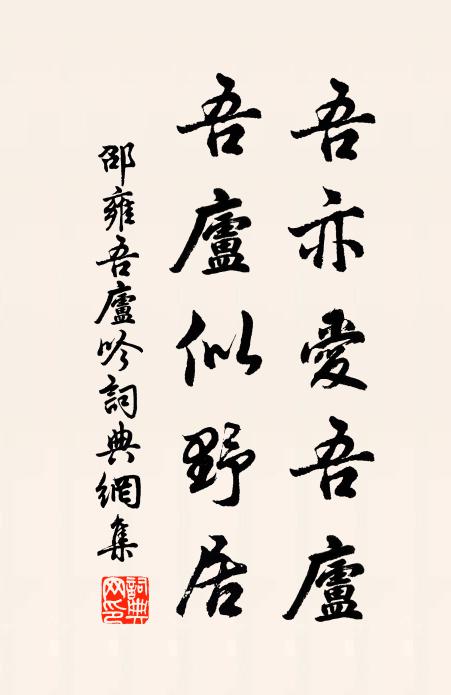 吾亦愛吾廬
吾廬似野居
邵雍吾廬吟詞典網集
詞典網印